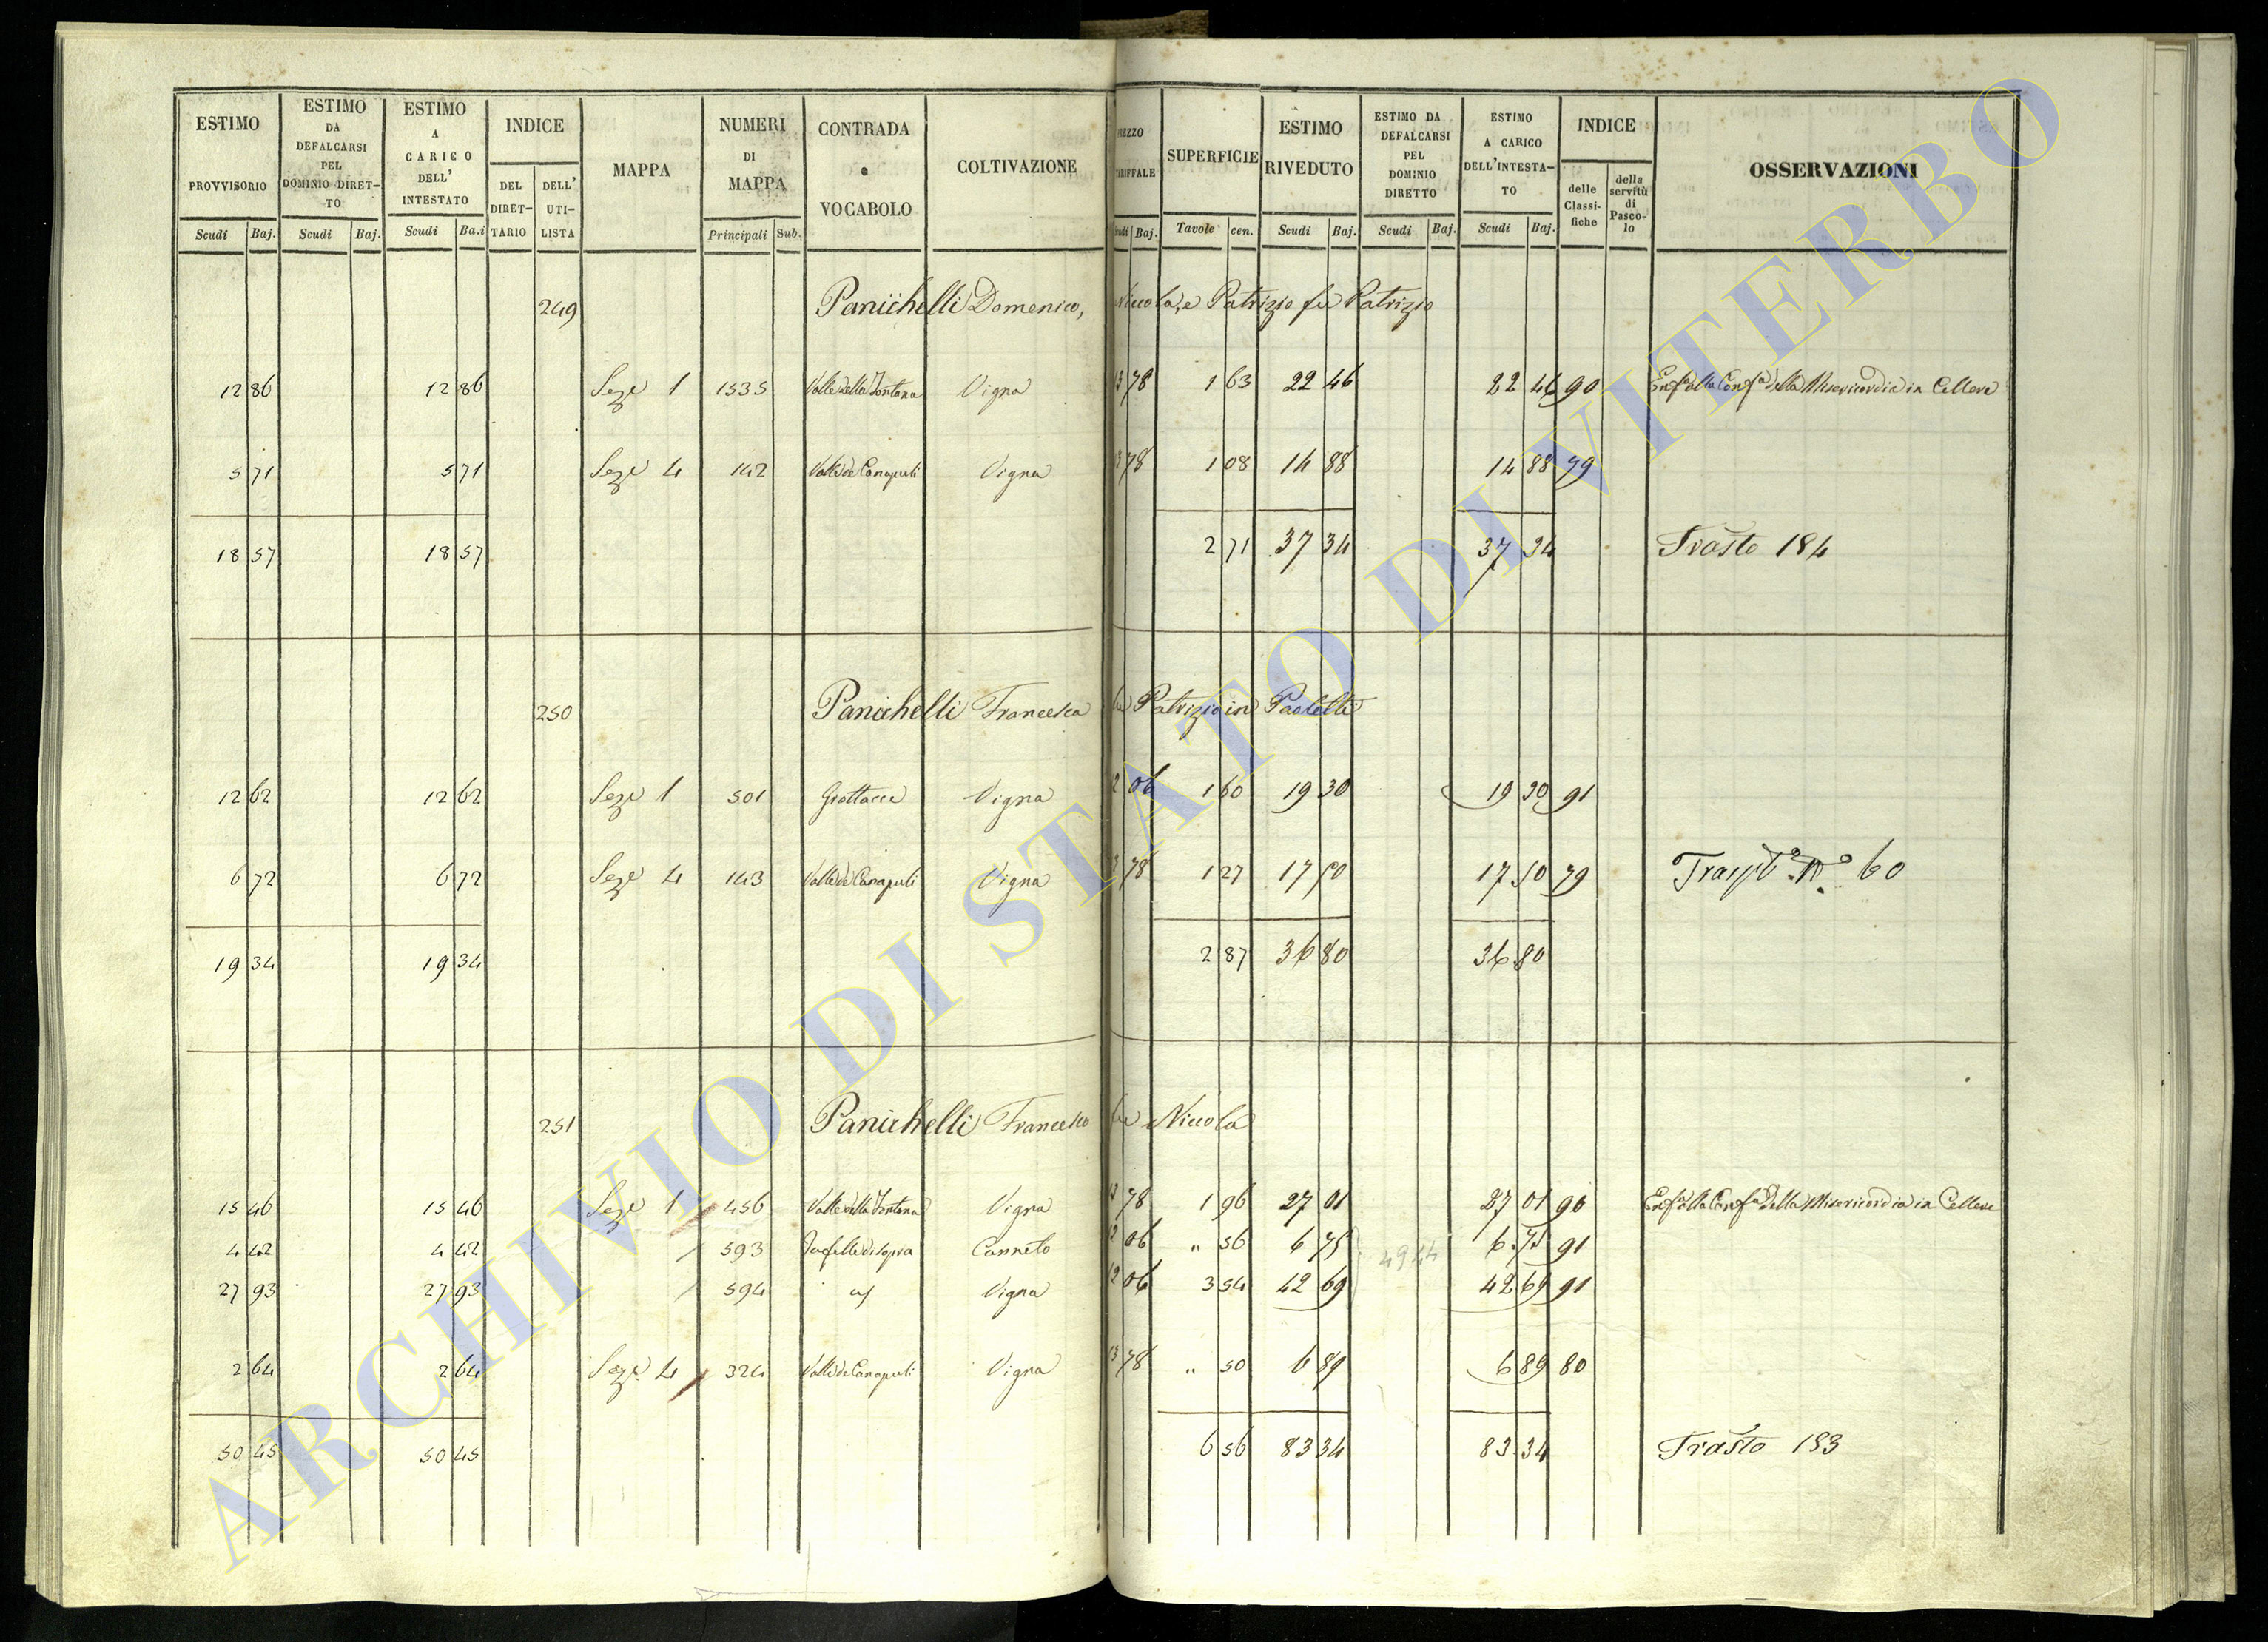 ESTIMO PROVVISORIO Scudi Baj. ESTIMO DA DEFALCARSI PEL DOMINIO DIRET-TO Scudi Baj. ESTIMO A CARICO DELL' INTESTATO Scudi Ba.i INDICE DEL DIRET-TARIO DELL' UTI-LISTA MAPPA NUMERI DI MAPPA Principali Sub. CONTRADA o VOCABOLO COLTIVAZIONE
TARIFFALE Baj. SUPERFICIE Tavole cen. ESTIMO RIVEDUTO Scudi Baj. ESTIMO DA DEFALCARSI PEL DOMINIO DIRETTO Scudi Baj. ESTIMO A CARICO DELL'INTESTA-TO Scudi Baj. INDICE delle Classi-fiche della servitù di Pasco-lo OSSERVAZIONI
249 Panichelli Domenico, Niccola, e Patrizio fu Patrizio
12 86 12 86 Seze 1 1535 Valle della Fontana Vigna 13 78 1 63 22 46 22 46 90 Enfa alla Confa della Misericordia in Cellere
5 71 5 71 Seze 4 142 Valle de Canapuli Vigna 13 78 1 08 14 88 14 88 79
18 57 18 57 2 71 37 34 37 34 Trasto 184
250 Panichelli Francesca fu Patrizio in Paoletti
12 62 12 62 Seze 1 501 Grottacce Vigna 12 06 1 60 19 30 19 30 91
6 72 6 72 Seze 4 143 Valle de Canapuli Vigna 13 78 1 27 17 50 17 50 79 No 60
19 34 19 34 2 87 36 80 36 80
251 Panichelli Francesco fu Niccola
15 46 15 46 Seze 1 456 Valle della Fontana Vigna 13 78 1 96 27 01 27 01 90 Enfa alla Confa della Misericordia in Cellere
4 42 4 42 593 di sopra Canneto 12 06 " 56 6 75 6 75 91
27 93 27 93 594 Vigna 12 06 3 54 42 69 42 69 91
49 44
2 64 2 64 Seze 4 324 Valle de Canapuli Vigna 13 78 " 50 6 89 6 89 80
50 45 50 45 6 56 83 34 83 34 Trasto 183
ARCHIVIO DI STATO DI VITERBO